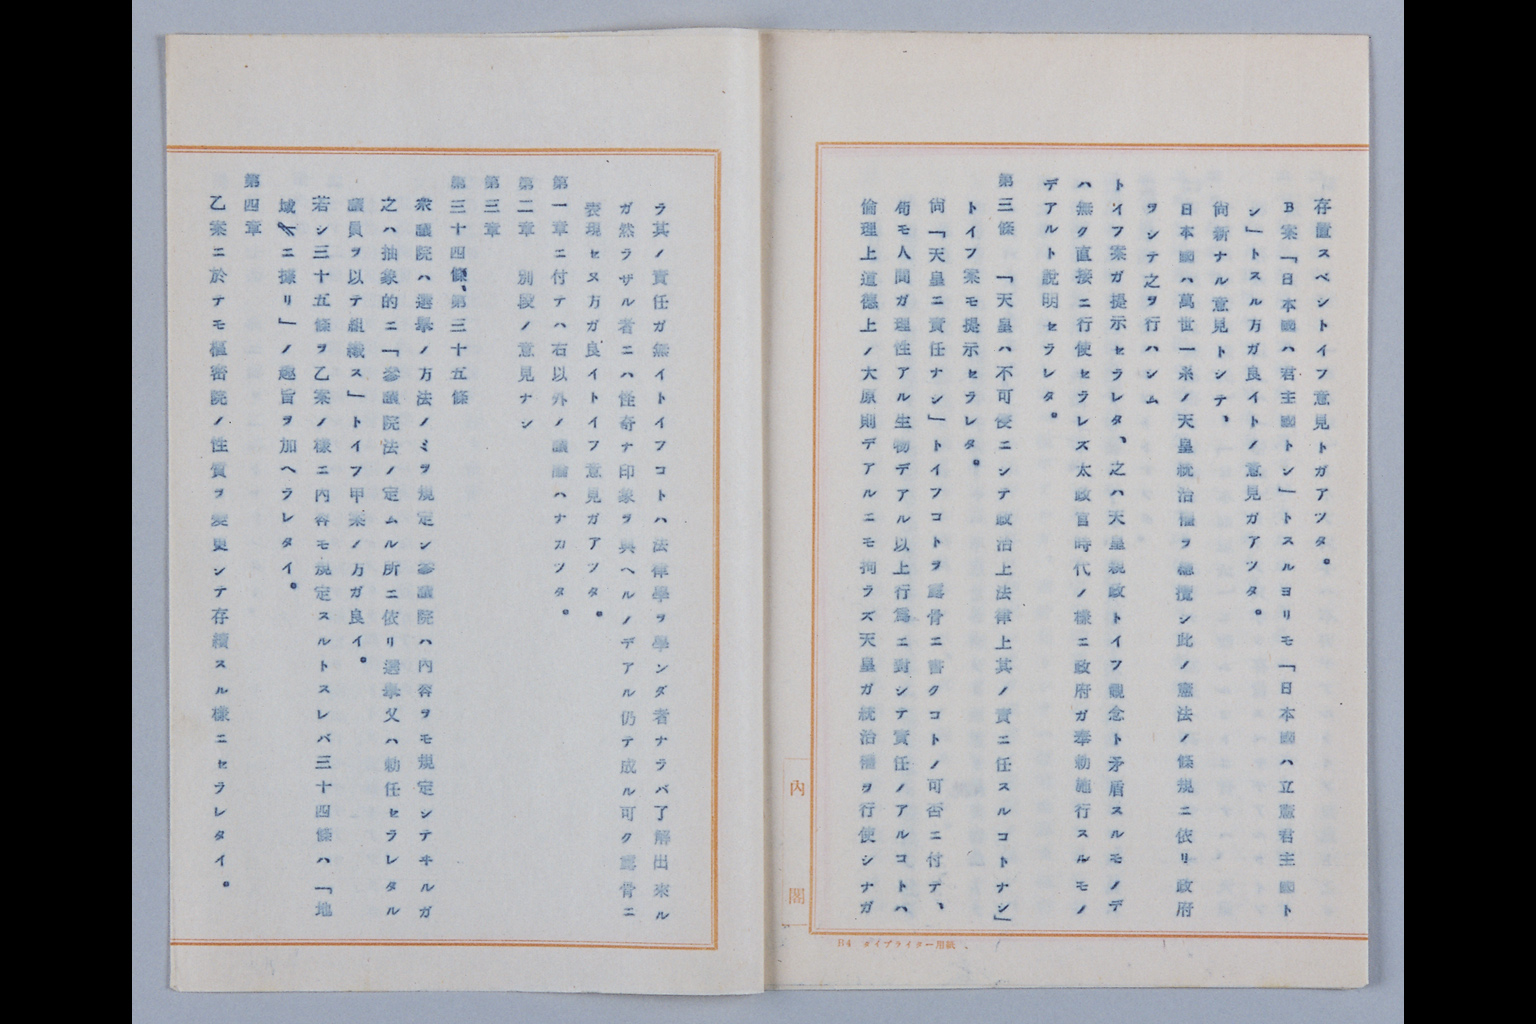 存置スベシトイフ意見トガアツタ。
B案「日本國ハ君主國トシ」トスルヨリモ「日本國ハ立憲君主國ト
シ」トスル方ガ良イトノ意見ガアツタ。
尙新ナル意見トシテ、
日本國ハ萬世一系ノ天皇統治權ヲ總攬シ此ノ憲法ノ條規ニ依リ政府
ヲシテ之ヲ行ハシム
トイフ案ガ提示セラレタ、之ハ天皇親政トイフ觀念ト矛盾スルモノデ
ハ無ク直接ニ行使セラレズ太政官時代ノ樣ニ政府ガ奉勅施行スルモノ
デアルト說明セラレタ。
第三條　「天皇ハ不可侵ニシテ政治上法律上其ノ責ニ任スルコトナシ」
トイフ案モ提示セラレタ。
尙「天皇ニ責任ナシ」トイフコトヲ露骨ニ書クコトノ可否ニ付テ、
苟モ人間ガ理性アル生物デアル以上行爲ニ對シテ責任ノアルコトハ
倫理上道德上ノ大原則デアルニモ拘ラズ天皇ガ統治權ヲ行使シナガ
內閣
B4 タイプライター用紙
ラ其ノ責任ガ無イトイフコトハ法律學ヲ學ンダ者ナラバ了解出來ル
ガ然ラザル者ニハ怪奇ナ印象ヲ與ヘルノデアル仍テ成ル可ク露骨ニ
表現セヌ方ガ良イトイフ意見ガアツタ。
第一章ニ付テハ右以外ノ議論ハナカツタ。
第二章　別段ノ意見ナシ
第三章
第三十四條、第三十五條
衆議院ハ選擧ノ方法ノミヲ規定シ參議院ハ內容ヲモ規定シテヰルガ
之ハ抽象的ニ「參議院法ノ定ムル所ニ依リ選擧又ハ勅任セラレタル
議員ヲ以テ組織ス」トイフ甲案ノ方ガ良イ。
若シ三十五條ヲ乙案ノ樣ニ內容モ規定スルトスレバ三十四條ハ「地
域ニ據リ」ノ趣旨ヲ加ヘラレタイ。
第四章
乙案ニ於テモ樞密院ノ性質ヲ變更シテ存續スル樣ニセラレタイ。